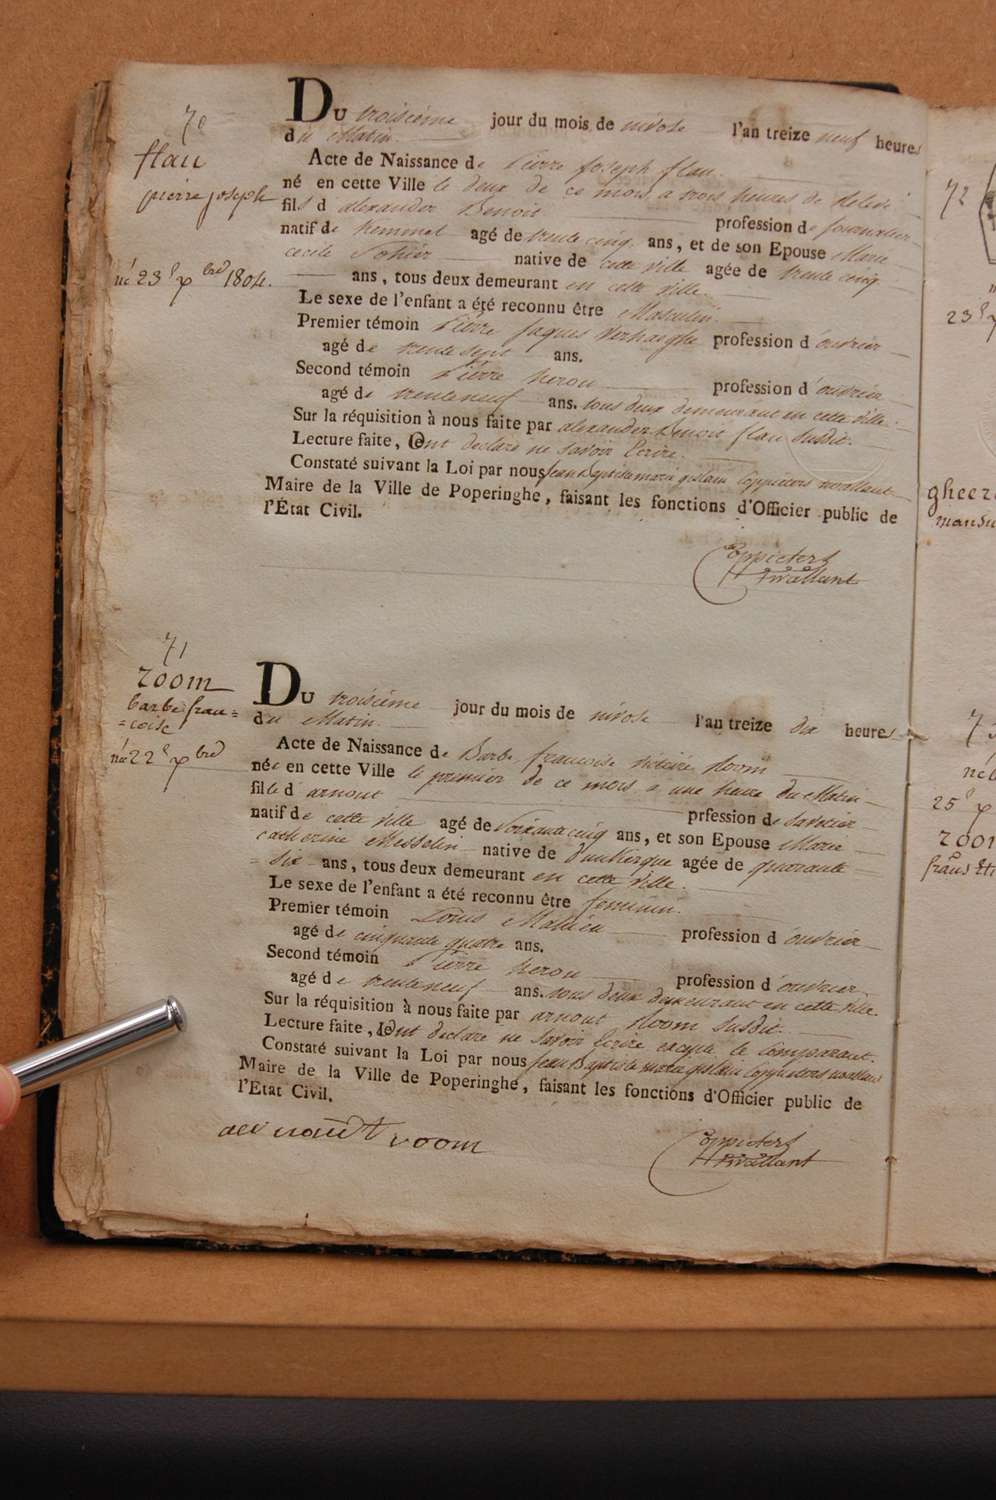 70
flau
pierre joseph
né 23 Xbre 1804.
Du troisième jour du mois de nivose l'an treize neuf heures
du Matin
Acte de Naissance de Pierre Joseph flau.
né en cette Ville le deux de ce mois a trois heures de
fils d'alexander Benoit profession de journalier
natif de kemmel agé de trente cinq ans, et de son Epouse Marie
cecile native de cette ville agée de trente cinq
ans, tous deux demeurant en cette ville.
Le sexe de l'enfant a été reconnu être Masculin.
Premier témoin Pierre Jaques Verhaeghe profession d'ouvrier
agé de trente sept ans.
Second témoin Pierre heron profession d'ouvrier
agé de trenteneuf ans. tous deux demeurant en cette ville.
Sur la réquisition à nous faite par alexander Benoit flau susdit.
Lecture faite, ont declaré ne savoir Ecrire.
Constaté suivant la Loi par nous Jean Baptiste marie gislain Coppieters
Maire de la Ville de Poperinghe, faisant les fonctions d'Officier public de
l'État Civil.
Coppieters
71
room
barbe fran=
=coise
née 22 Xbre
Du troisième jour du mois de nivose l'an treize dix heures
du Matin.
Acte de Naissance de Barbe francoise room
née en cette Ville le premier de ce mois a une heure du Matin
fille d'arnout prfession de
natif de cette ville agé de Soixante cinq ans, et son Epouse Marie
catherine Messelin native de Dunkerque agée de quarante
=six ans, tous deux demeurant en cette ville.
Le sexe de l'enfant a été reconnu être feminin.
Premier témoin Louis Mahieu profession d'ouvrier
agé de cinquante quatre ans.
Second témoin Pierre heron profession d'ouvrier
agé de trenteneuf ans. tous deux demeurant en cette ville.
Sur la réquisition à nous faite par arnout Room susdit.
Lecture faite, ont declaré ne savoir Ecrire excepte le Comparant.
Constaté suivant la Loi par nous Jean Baptiste marie gislain Coppieters
Maire de la Ville de Poperinghe, faisant les fonctions d'Officier public de
l'État Civil.
room
Coppieters
72
23
gheer
25
room